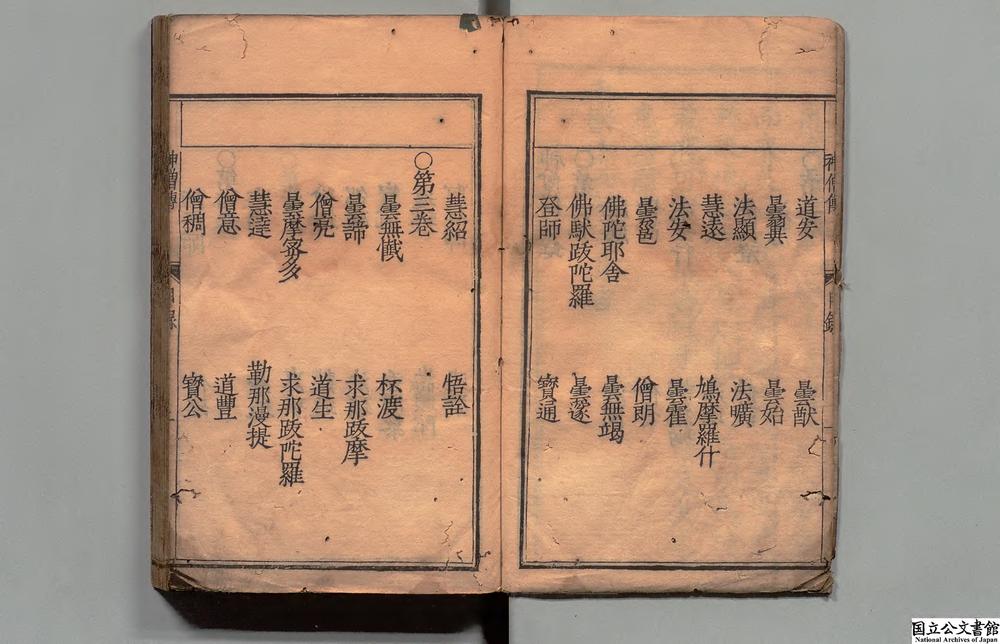 道安 曇猷
曇翼 曇始
法顯 法曠
慧遠 鳩摩羅什
法安 曇霍
曇邕 僧朗
佛陀耶舍 曇無竭
佛馱跋陀羅 曇邃
登師 寶通
慧紹 悟詮
○第三卷
曇無懺 杯渡
曇諦 求那跋摩
僧亮 道生
曇摩密多 求那跋陀羅
慧達 勒那漫提
僧意 道豐
僧稠 寶公
神僧傳 目錄
神僧傳 目錄 一
国立公文書館
National Archives of Japan